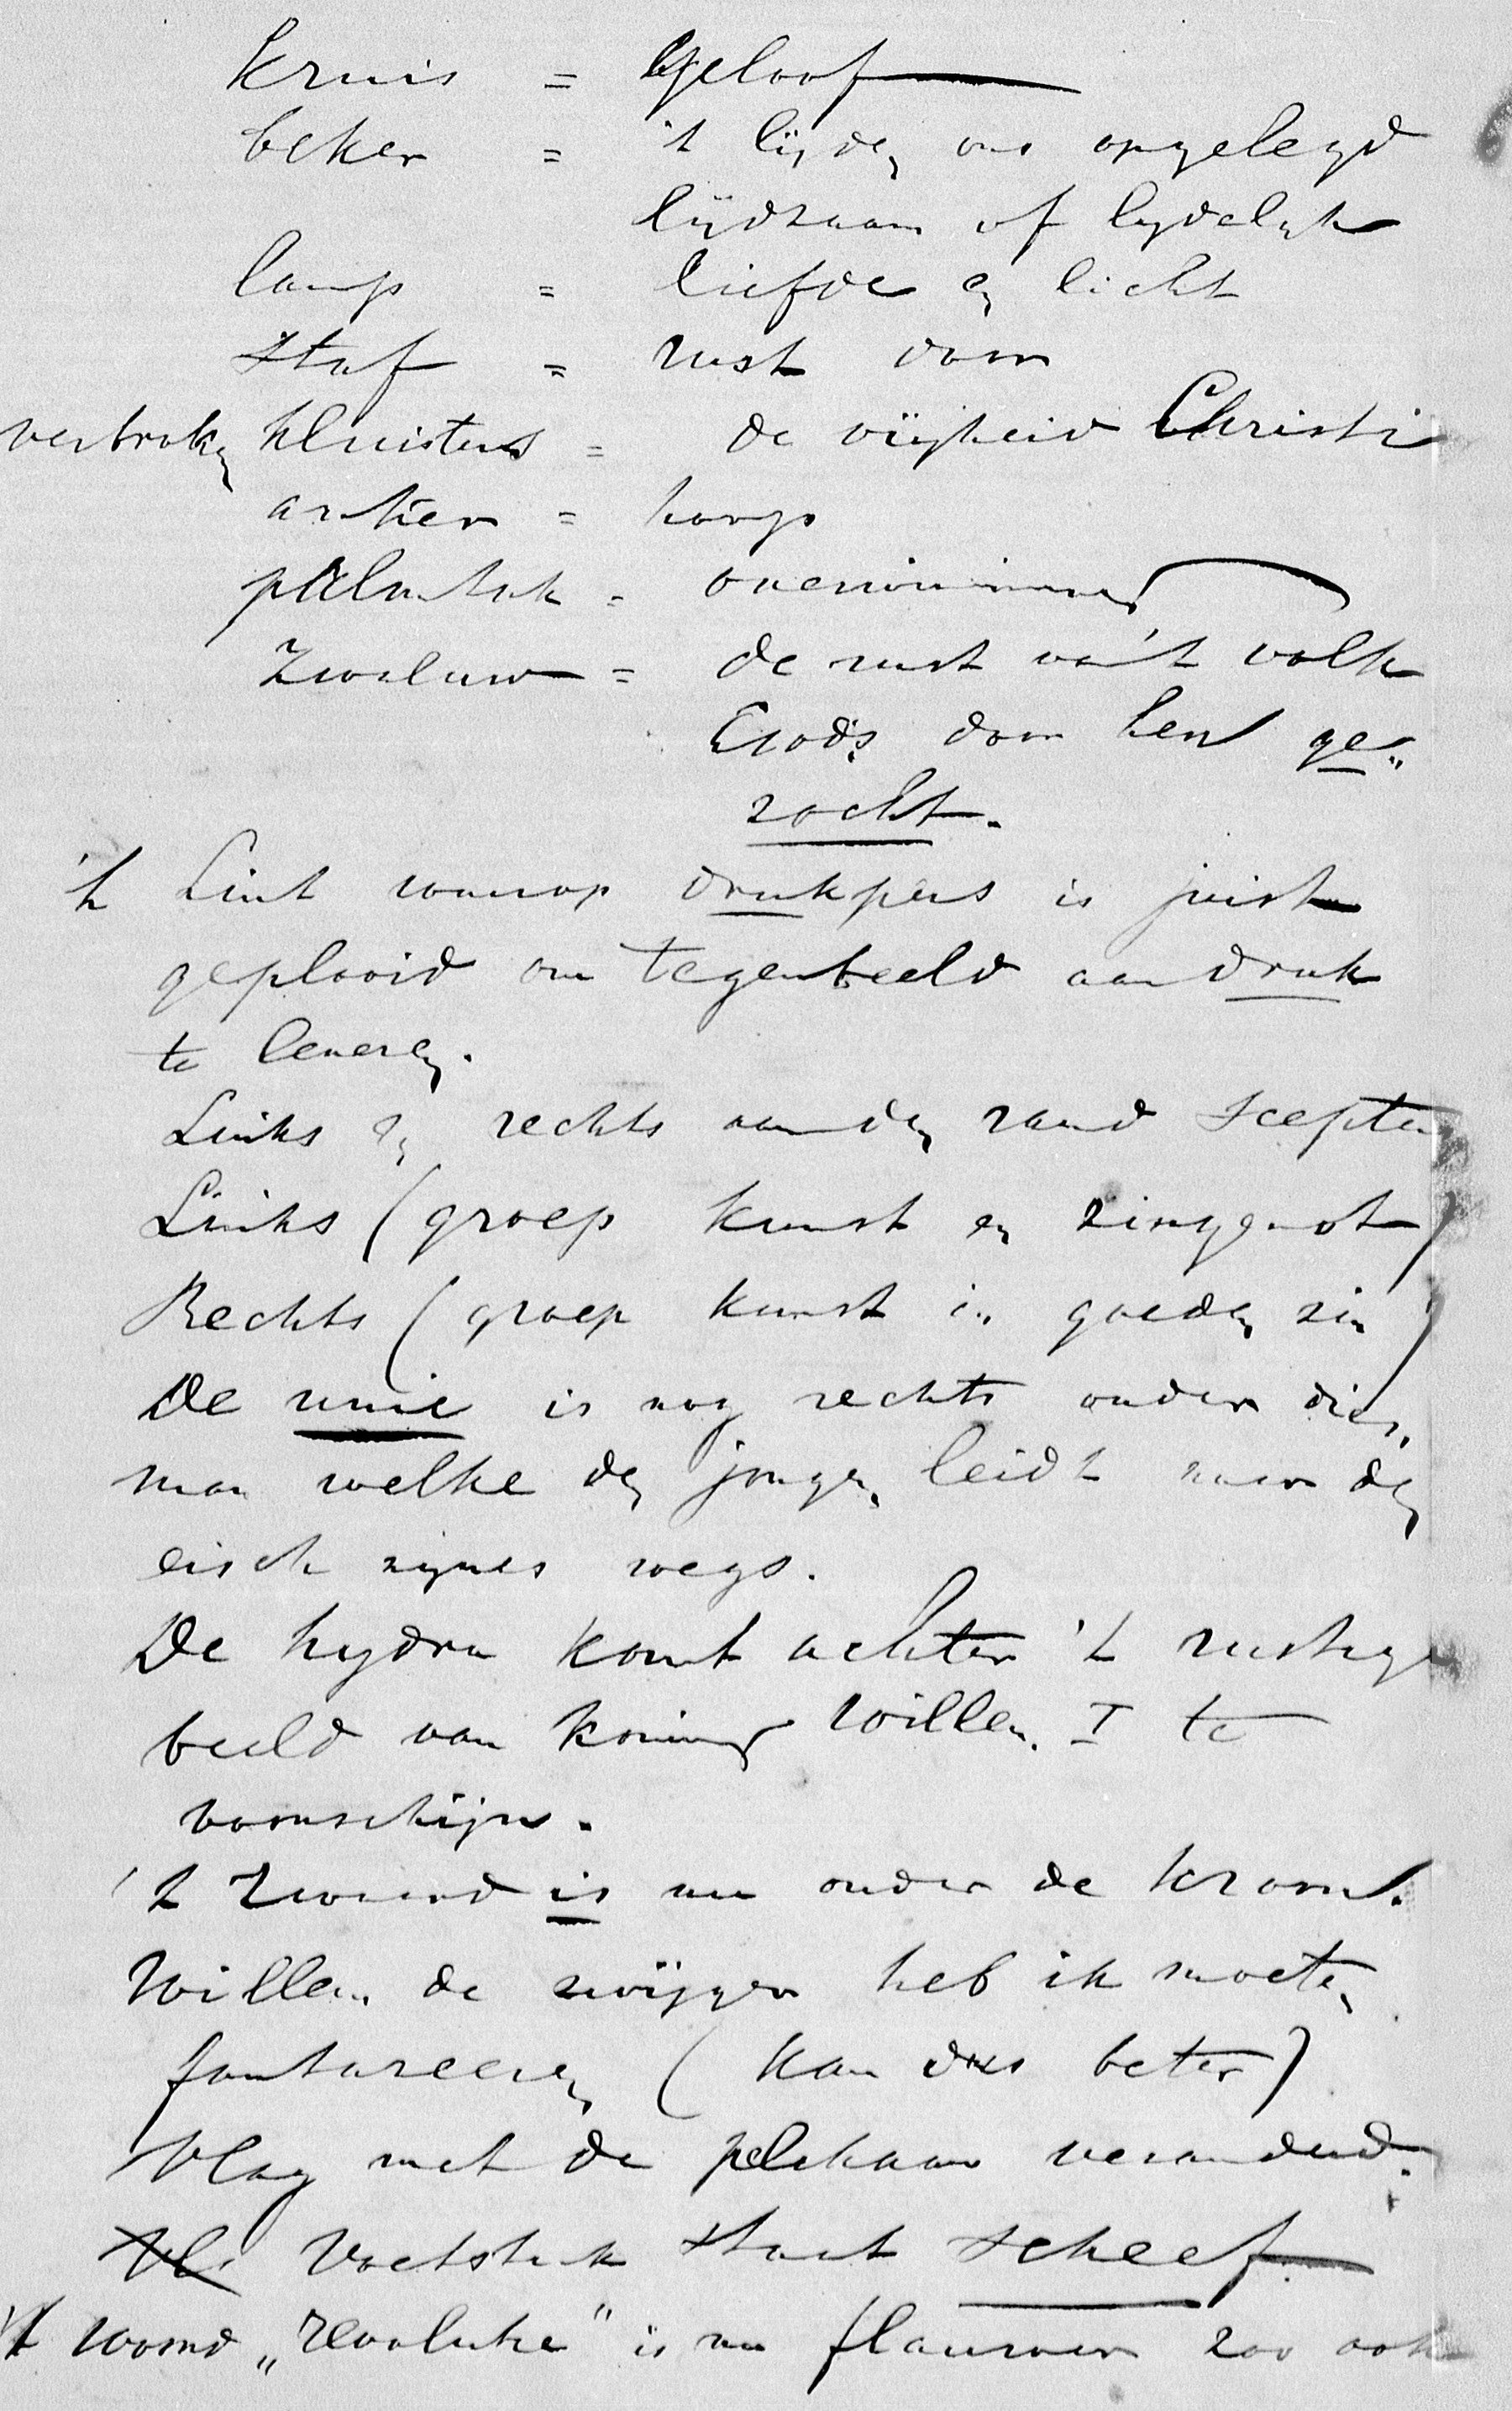 kruis = Geloof
beker = 't lijden ons opgelegd
lijdzaam of lijdelijk
lamp = liefde en licht
staf = rust door
verbroken kluisters = de vrijheid Christi
anker = hoop
palmtak = overwinning
Zwaluw = de rust van 't volk
Gods door hen ge-
zocht.
't Lint waarop drukpers is juist
geplooid om tegenbeeld aan druk
te leveren.
Links en rechts aan den rand scepter
Links (groep kunst en zingenot)
Rechts (groep kunst in goeden zin)
De unie is nog rechts onder dien
man welke den jongen leidt naar den
eisch zijnes wegs.
De hydra komt achter 't rustige
beeld van koning Willem I te
voorschijn.
't Zwaard is nu onder de kroon.
Willem de zwijger heb ik moeten
fantaseeren (kan dus beter)
Vlag met de pelikaan veranderd.
Voetstuk staat scheef.
't woord „Revolutie" is nu flauwer zoo ook